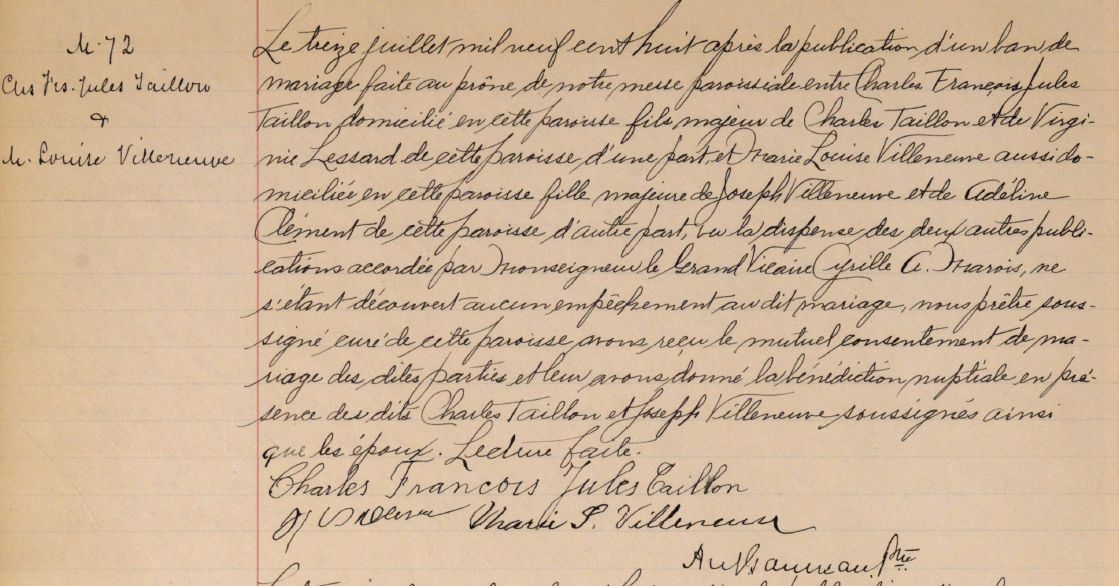 M. 72
Chs Frs. Jules Taillon
&
M. Louise Villeneuve
Le treize juillet mil neuf cent huit après la publication d'un ban de
mariage faite au prône de notre messe paroissiale entre Charles François Jules
Taillon domicilié en cette paroisse fils majeur de Charles Taillon et de Virgi-
nie Lessard de cette paroisse d'une part, et Marie Louise Villeneuve aussi do-
miciliée en cette paroisse fille majeure de Joseph Villeneuve et de Adéline
Clément de cette paroisse d'autre part, vu la dispense des deux autres publi-
cations accordée par Monseigneur le Grand Vicaire Cyrille A. Marois, ne
s'étant découvert aucun empêchement au dit mariage, nous prêtre sous-
signé curé de cette paroisse avons reçu le mutuel consentement de ma-
riage des dites parties et leur avons donné la bénédiction nuptiale en pré-
sence des dits Charles Taillon et Joseph Villeneuve soussignés ainsi
que les époux. Lecture faite.
Charles Francois Jules Taillon
Marie L. Villeneuve
Ptre